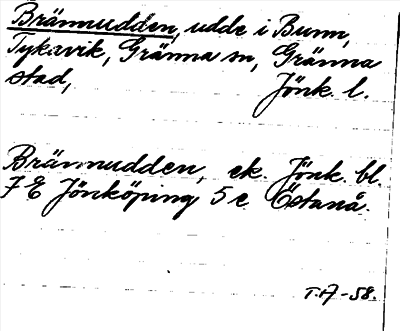 Brännudden, udde i Bunn,
Tykavik, Gränna sn, Gränna
stad, Jönk. l.
Brännudden, ek. Jönk. bl.
7 E Jönköping 5 e Östanå.
T.H-58.